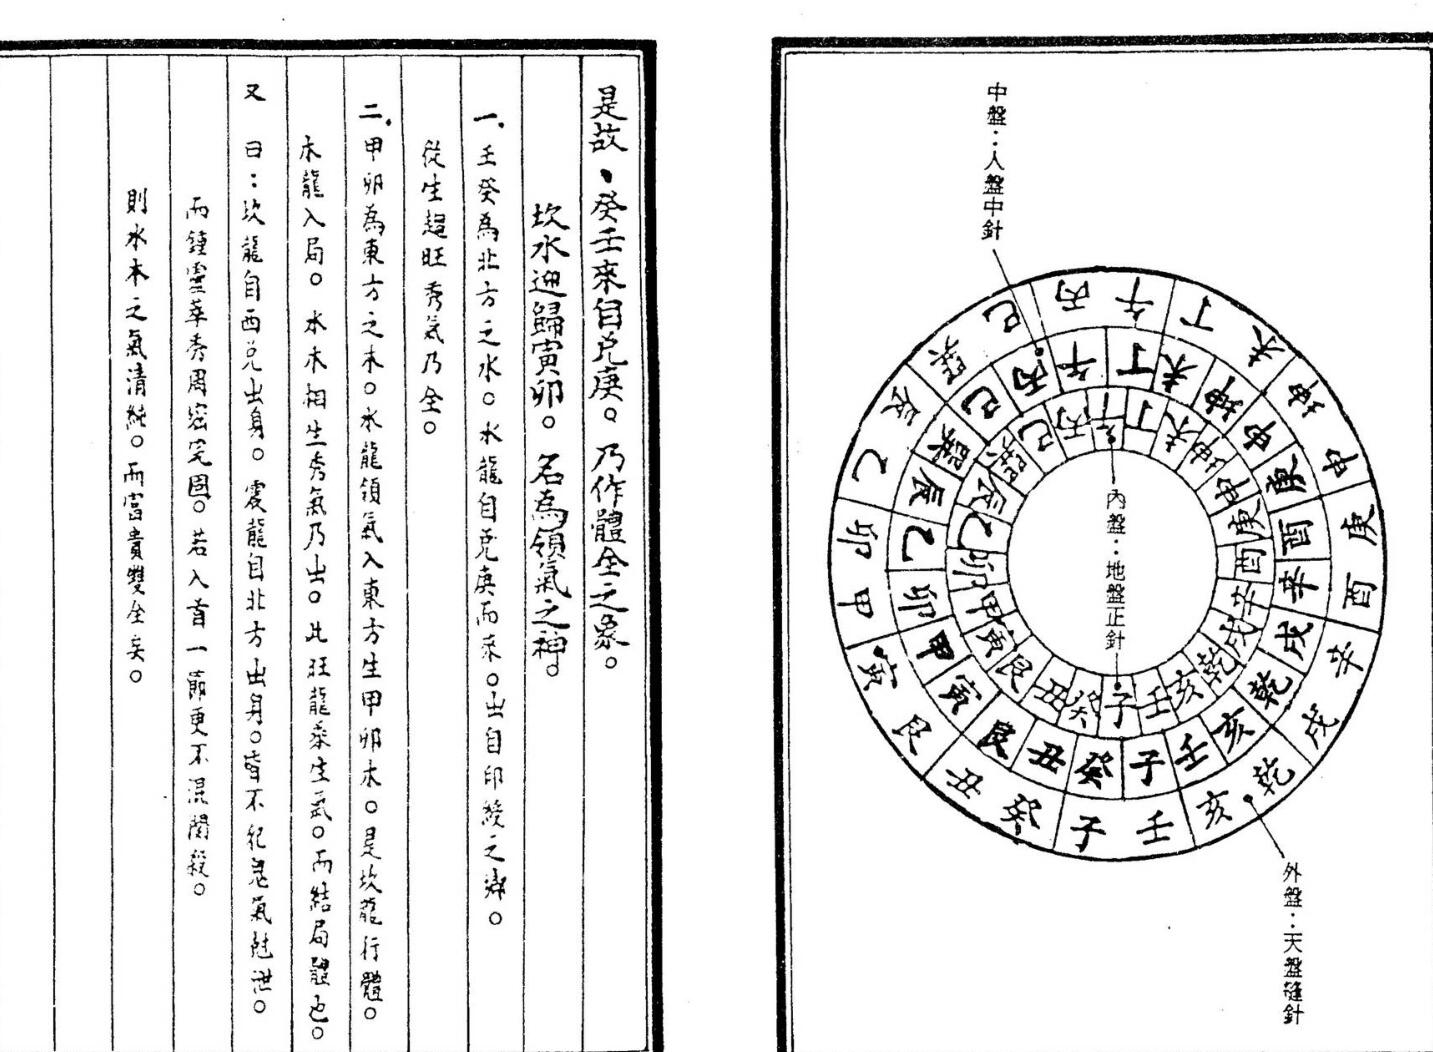 中盤：人盤中針
午丁未坤申庚酉辛戌乾亥壬子癸丑艮寅甲卯乙辰巽巳丙
午丁未坤申庚酉辛戌乾亥壬子癸丑艮寅甲卯乙辰巽巳丙
午丁未坤申庚酉辛戌乾亥壬子癸丑艮寅甲卯乙辰巽巳丙
內盤：地盤正針
外盤：天盤縫針
是故、癸壬來自兌庚。乃作體全之象。
坎水迎歸寅卯。名為領氣之神。
一、壬癸為北方之水。水龍自兌庚而來。出自印綬之鄉。
從生趨旺秀氣乃全。
二、甲卯為東方之木。水龍領氣入東方生甲卯木。是坎龍行體。
木龍入局。水木相生秀氣乃出。此旺龍乘生氣。而結局體也。
又曰：坎龍自西兌出身。震龍自北方出身。皆不犯鬼氣尅泄。
而鍾靈萃秀周密完固。若入首一節更不混關殺。
則水木之氣清純。而富貴雙全矣。